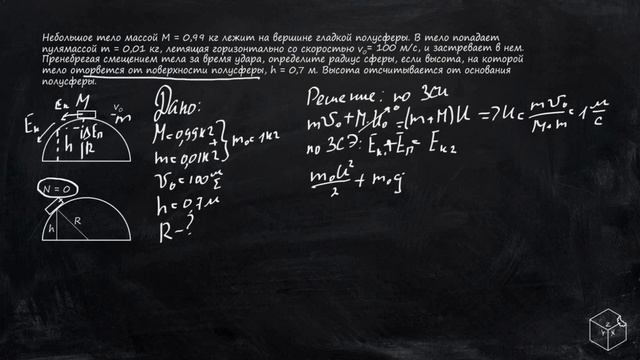 Небольшое тело массой M = 0,99 кг лежит на вершине гладкой полусферы. В тело попадает
пулямассой m = 0,01 кг, летящая горизонтально со скоростью v₀= 100 м/с, и застревает в нем.
Пренебрегая смещением тела за время удара, определите радиус сферы, если высота, на которой
тело оторвется от поверхности полусферы, h = 0,7 м. Высота отсчитывается от основания
полусферы.
Eп M v₀ m
Eк h ΔEп R
N = 0
h R
Дано:
M=0,99кг
+ } m₀=1кг
m=0,01кг
v₀=100 м/с
h=0,7м
R-?
Решение: по ЗСИ
mv₀+M·U₀⁰=(m+M)U => U= mv₀/M+m = 1 м/с
по ЗСЭ: Eк₁+Eп = Eк2
m₀U²/2 + m₀g
Z Y X